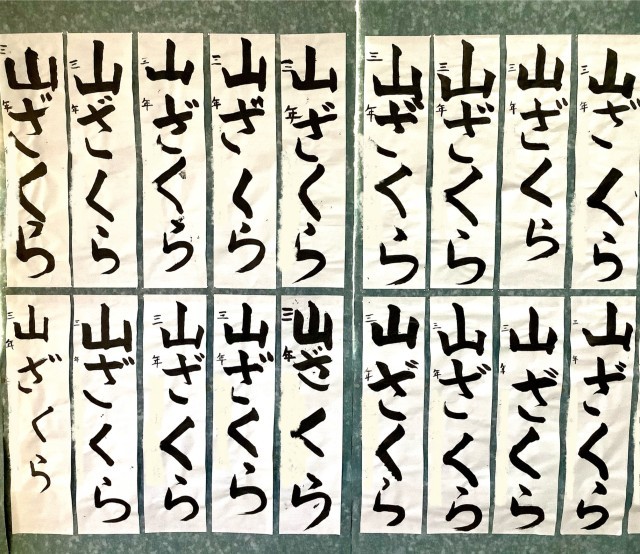 山ざくら
三年
山ざくら
三年
山ざくら
三年
山ざくら
三年
山ざくら
三年
山ざくら
三年
山ざくら
三年
山ざくら
三年
山ざくら
三年
山ざくら
三年
山ざくら
三年
山ざくら
三年
山ざくら
三年
山ざくら
三年
山ざくら
三年
山ざくら
三年
山ざくら
三年
山ざくら
三年